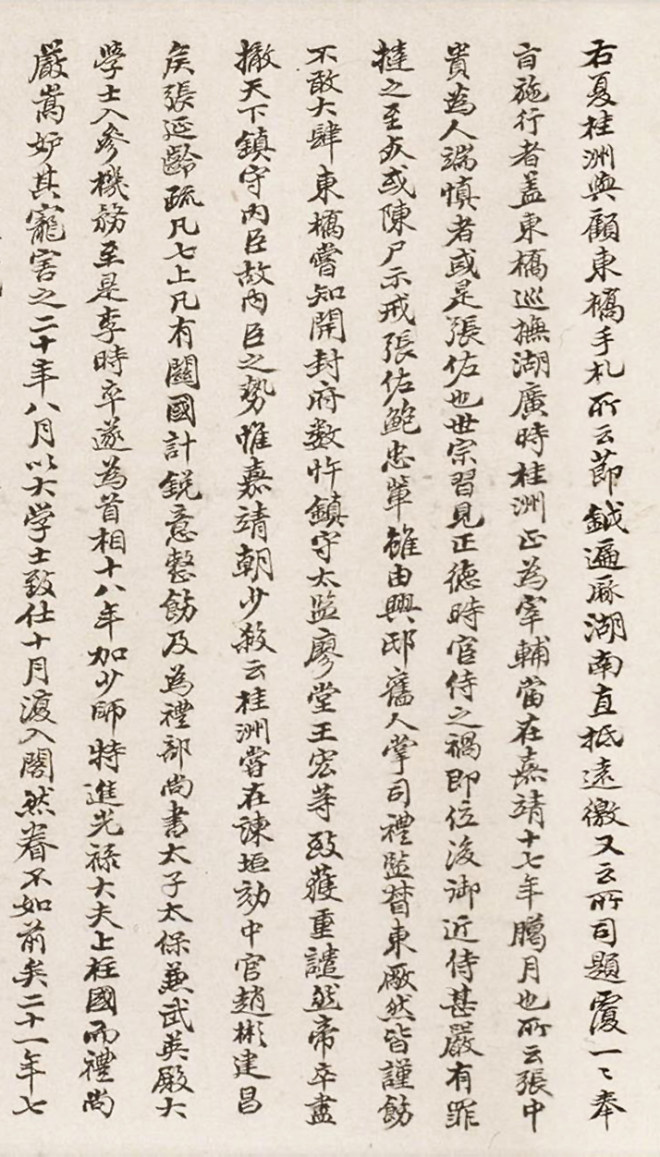 右夏桂洲與顧東橋手札所云節鉞遍歷湖南直抵遠徼又云所司題覆一〻奉
旨施行者蓋東橋巡撫湖廣時桂洲正為宰輔當在嘉靖十七年臘月也所云張中
貴為人端慎者或是張佐也世宗習見正德時宦侍之禍即位後御近侍甚嚴有罪
撻之至死或陳尸示戒張佐鮑忠輩雖由興邸舊人掌司禮監督東廠然皆謹飭
不敢大肆東橋嘗知開封府數忤鎮守太監廖堂王宏等致獲重譴然帝卒盡
撤天下鎮守內臣故內臣之勢惟嘉靖朝少殺云桂洲嘗在諫垣劾中官趙彬建昌
矦張延齡疏凡七上凡有關國計銳意整飭及為禮部尚書太子太保兼武英殿大
學士入參機務至是李時卒遂為首相十八年加少師特進光祿大夫上柱國而禮尚
嚴嵩妒其寵害之二十年八月以大学士致仕十月復入閣然眷不如前矣二十一年七